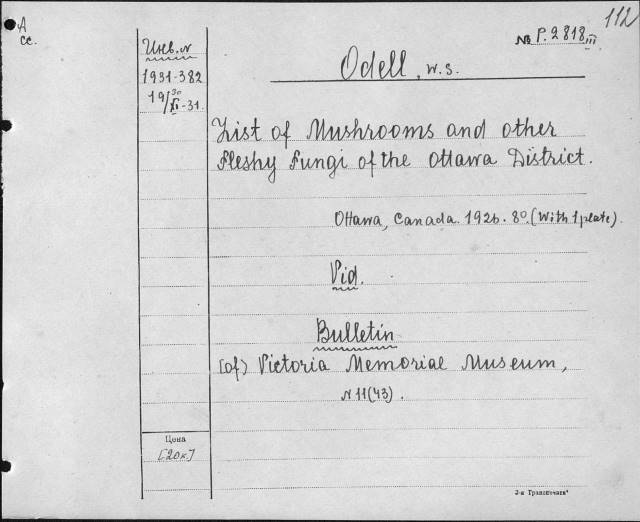 112
A
cc.
Инв. N
1931-382
19/30 XI-31.
№ P.2818 III
Odell, W.S.
List of Mushrooms and other
Fleshy Fungi of the Ottawa District.
Ottawa, Canada. 1926. 8°. (With 1 plate).
Vid.
Bulletin
(of) Victoria Memorial Museum,
N 11(43).
Цена
[20к.]
3-я Транспечать"